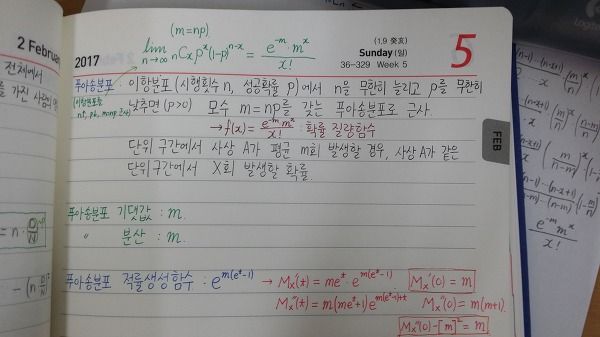 2 February
전체에서
(m=np)
lim n→∞ nCx p^x (1-p)^(n-x) = e^(-m)·m^x / x!
2017
(1.9 癸亥)
Sunday (일)
36-329 Week 5
5
FEB
푸아송분포 : 이항분포 (시행횟수 n, 성공확률 p)에서 n을 무한히 늘리고 p를 무한히
(이항분포를
n↑, p↓, m=np 고정)
낮추면 (p>0) 모수 m=np를 갖는 푸아송분포로 근사
→ f(x) = e^(-m) m^x / x! : 확률 질량함수
단위 구간에서 사상 A가 평균 m회 발생할 경우, 사상 A가 같은
단위구간에서 X회 발생할 확률.
푸아송분포 기댓값 : m.
〃 분산 : m.
푸아송분포 적률생성함수 : e^(m(e^t-1)) → Mx'(t) = me^t · e^(m(e^t-1)). Mx'(0) = m
Mx''(t) = m(me^t+1)e^(m(e^t-1)+t) Mx''(0) = m(m+1).
Mx''(0) - [m]² = m
e^(-m) m^x / x!